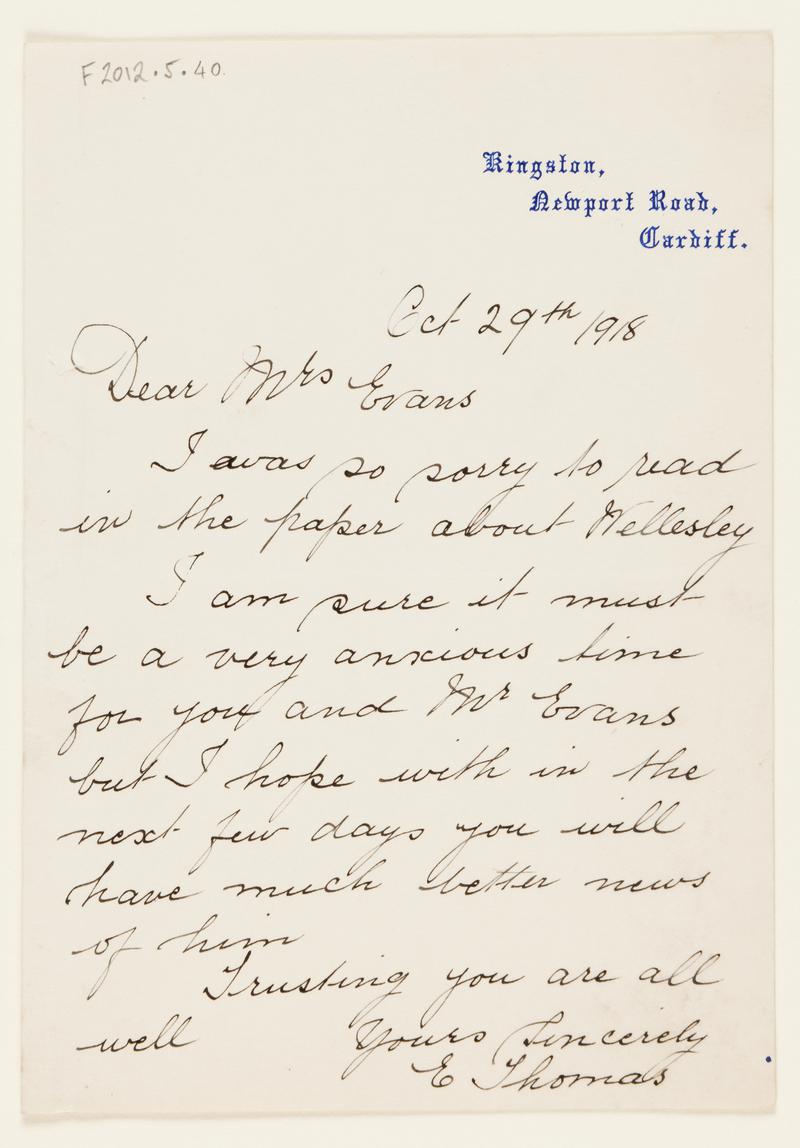 F2012.5.40.
Kingston,
Newport Road,
Cardiff.
Oct 29th 1918
Dear Mrs Evans
I was so sorry to read
in the paper about Wellesley
I am sure it must
be a very anxious time
for you and Mr Evans
but I hope with in the
next few days you will
have much better news
of him
Trusting you are all
well Yours Sincerely
E Thomas